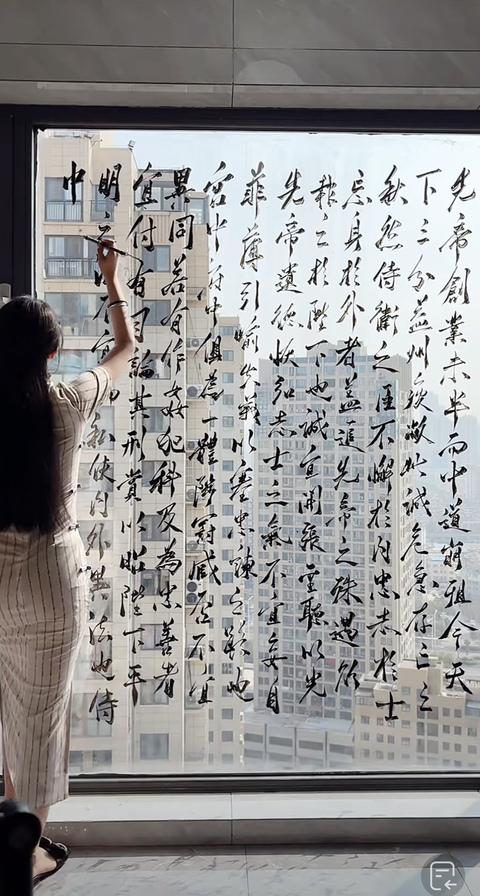 先帝創業未半而中道崩殂今天
下三分益州疲敝此誠危急存亡之
秋然侍衛之臣不懈於內忠志於士
忘身於外者蓋追先帝之殊遇欲
報之於陛下也誠宜開張聖聽以光
先帝遺德恢弘志士之氣不宜妄自
菲薄引喻失義以塞忠諫之路也
宮中府中俱為一體陟罰臧否不宜
異同若有作姦犯科及為忠善者
宜付有司論其刑賞以昭陛下平
明之不宜私使內外異法也侍
中